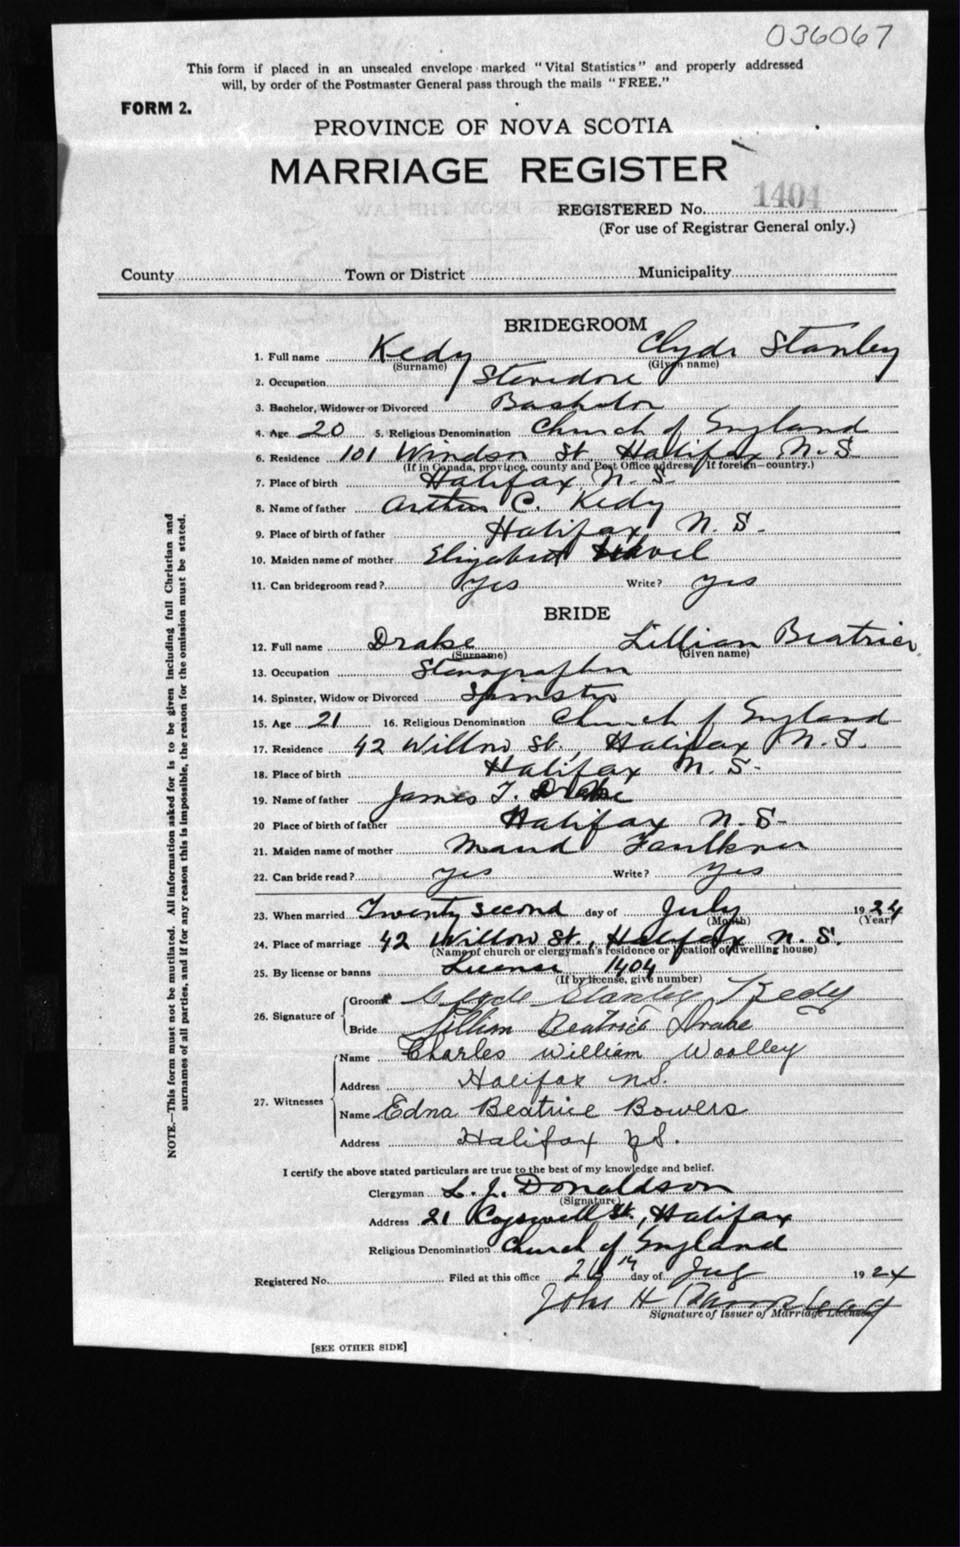 036067
This form if placed in an unsealed envelope marked "Vital Statistics" and properly addressed
will, by order of the Postmaster General pass through the mails "FREE."
FORM 2.
PROVINCE OF NOVA SCOTIA
MARRIAGE REGISTER
REGISTERED No. 1404
(For use of Registrar General only.)
County Town or District Municipality
BRIDEGROOM
1. Full name Kedy Clyde Stanley
(Surname) (Given name)
2. Occupation Stevedore
3. Bachelor, Widower or Divorced Bachelor
4. Age 20 5. Religious Denomination Church of England
6. Residence 101 Windsor St Halifax N.S
(If in Canada, province, county and Post Office address. If foreign—country.)
7. Place of birth Halifax N.S.
8. Name of father Arthur C. Kedy
9. Place of birth of father Halifax N.S.
10. Maiden name of mother Elizabeth
11. Can bridegroom read? Yes Write? Yes
BRIDE
12. Full name Drake Lillian Beatrice
(Surname) (Given name)
13. Occupation Stenographer
14. Spinster, Widow or Divorced Spinster
15. Age 21 16. Religious Denomination Church of England
17. Residence 42 Willow St., Halifax N.S.
18. Place of birth Halifax N.S.
19. Name of father James T. Drake
20 Place of birth of father Halifax N.S.
21. Maiden name of mother Maud Faulkner
22. Can bride read? yes Write? Yes
23. When married Twenty second day of July 1924
(Month) (Year)
24. Place of marriage 42 Willow St., Halifax N.S.
(Name of church or clergyman's residence or location of dwelling house)
25. By license or banns License 1404
(If by license, give number)
26. Signature of
Groom Clyde Stanley Kedy
Bride Lillian Beatrice Drake
27. Witnesses
Name Charles William Woolley
Address Halifax NS.
Name Edna Beatrice Bowers
Address Halifax NS.
I certify the above stated particulars are true to the best of my knowledge and belief.
Clergyman L. J. Donaldson
(Signature)
Address 21 Cogswell St., Halifax
Religious Denomination Church of England
Registered No. Filed at this office day of July 1924
John H
Signature of Issuer of Marriage Licenses
[SEE OTHER SIDE]
NOTE.—This form must not be mutilated. All information asked for is to be given including full Christian and
surnames of all parties, and if for any reason this is impossible, the reason for the omission must be stated.